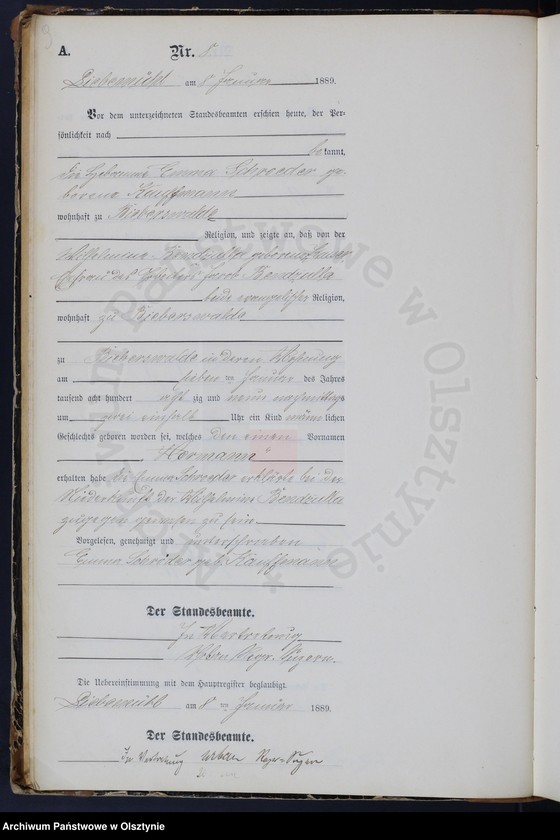 A.
Nr. 8
Liebemühl am 8 Januar 1889.
Vor dem unterzeichneten Standesbeamten erschien heute, der Per-
sönlichkeit nach
bekannt,
die Hebamme Emma Schroeder ge-
borene Kauffmann
wohnhaft zu Bieberswalde
Religion, und zeigte an, daß von der
Wilhelmine Bendzulla geborene
Ehefrau des Jacob Bendzulla
beide evangelischer Religion,
wohnhaft zu Bieberswalde
zu Bieberswalde in deren Wohnung
am sieben ten Januar des Jahres
tausend acht hundert acht zig und neun nachmittags
um ein halb Uhr ein Kind männlichen
Geschlechts geboren worden sei, welches den einen Vornamen
"Hermann"
erhalten habe die Emma Schroeder erklärte bei der
Niederkunft der Wilhelmine Bendzulla
zugegen gewesen zu sein.
Vorgelesen, genehmigt und unterschrieben
Emma Schröder geb. Kauffmann
Der Standesbeamte.
In Vertretung
Urban
Die Uebereinstimmung mit dem Hauptregister beglaubigt.
Liebemühl am 8 ten Januar 1889.
Der Standesbeamte.
In Vertretung Urban
Archiwum Państwowe w Olsztynie
Archiwum Państwowe w Olsztynie